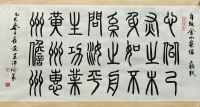 自題金山畫像 蘇軾
心似已灰
之木身如
不繫之舟
問汝平生
功業黃州
惠州儋州